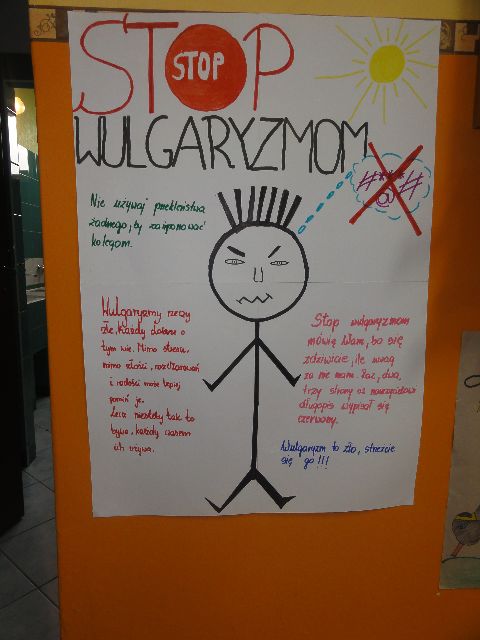 STOP
STOP
WULGARYZMOM
#***#
@
Nie używaj przekleństwa
żadnego, by zaimponować
kolegom.
Wulgaryzmy rzeczy
złe, każdy dobrze o
tym wie. Mimo stresu,
mimo złości, rozczarowań
i radości może lepiej
pomiń je.
Lecz niestety tak to
bywa, każdy czasem
ich używa.
Stop wulgaryzmom
mówię Wam, bo się
zdziwicie, ile uwag
za nie mam. Raz, dwa,
trzy strony aż nauczycielowi
długopis wypisał się
czerwony.
Wulgaryzm to zło, strzeżcie
się go!!!